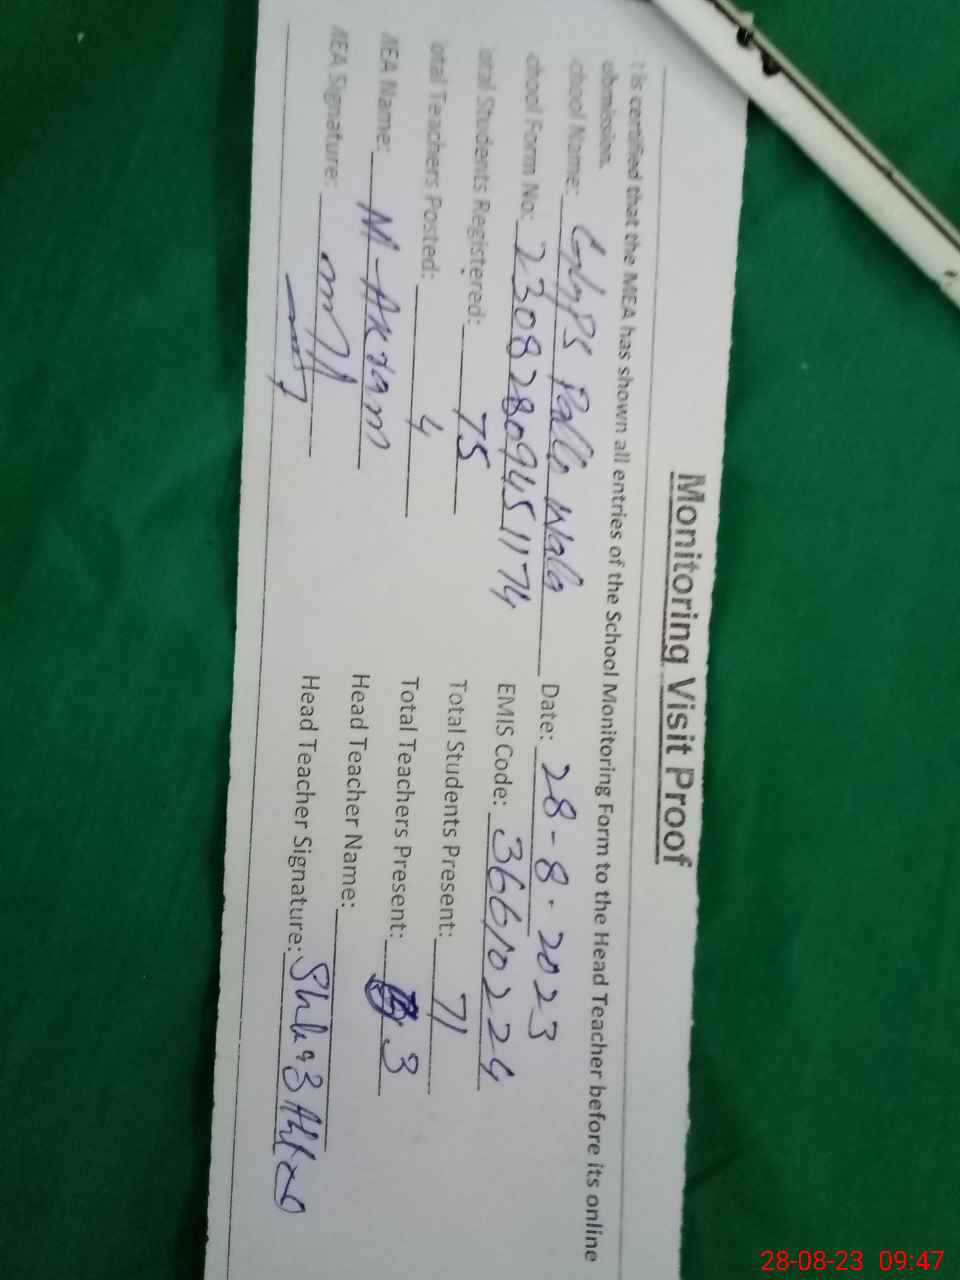 Monitoring Visit Proof
t is certified that the MEA has shown all entries of the School Monitoring Form to the Head Teacher before its online
ubmission.
chool Name: GMPS Palla Wala Date: 28-8-2023
chool Form No: 23082809451174 EMIS Code: 36610224
otal Students Registered: 75 Total Students Present: 71
otal Teachers Posted: 4 Total Teachers Present: 3
MEA Name: M-Akram Head Teacher Name:
MEA Signature: Head Teacher Signature:
28-08-23 09:47